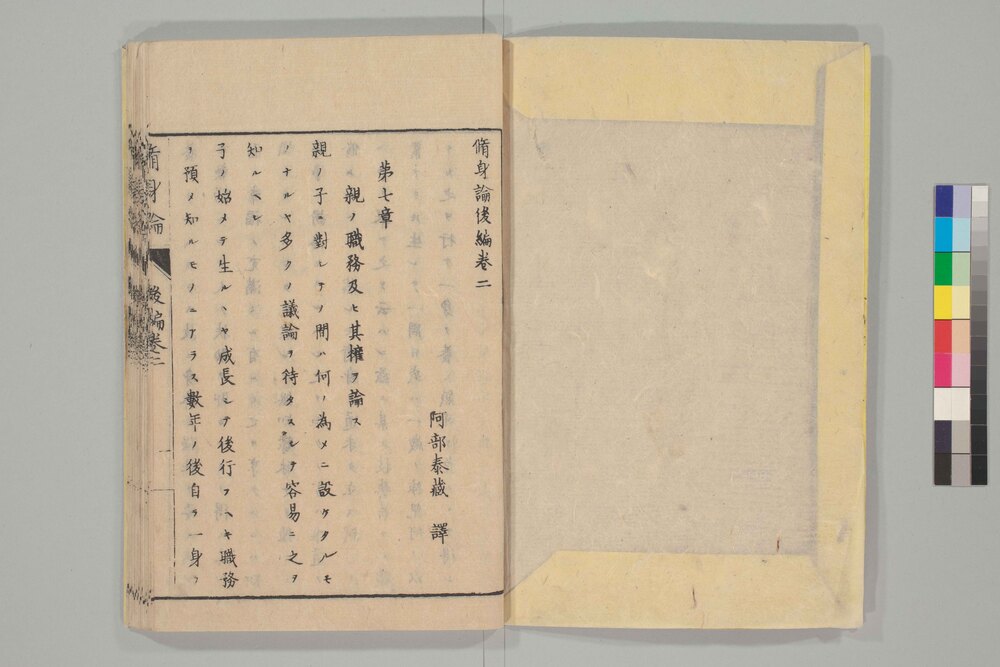 脩身論後編卷二
阿部泰藏 譯
第七章
親ノ職務及ヒ其權ヲ論ス
親ノ子ニ對シテノ間ハ何ノ為メニ設ケタルモ
ノナルヤ多クノ議論ヲ待タスシテ容易ニ之ヲ
知ルヘシ
子ノ始メテ生ルヽヤ成長シテ後行フヘキ職務
ヲ預メ知ルモノニアラス數年ノ後自ラ一身ノ
脩身論 後編卷二 一